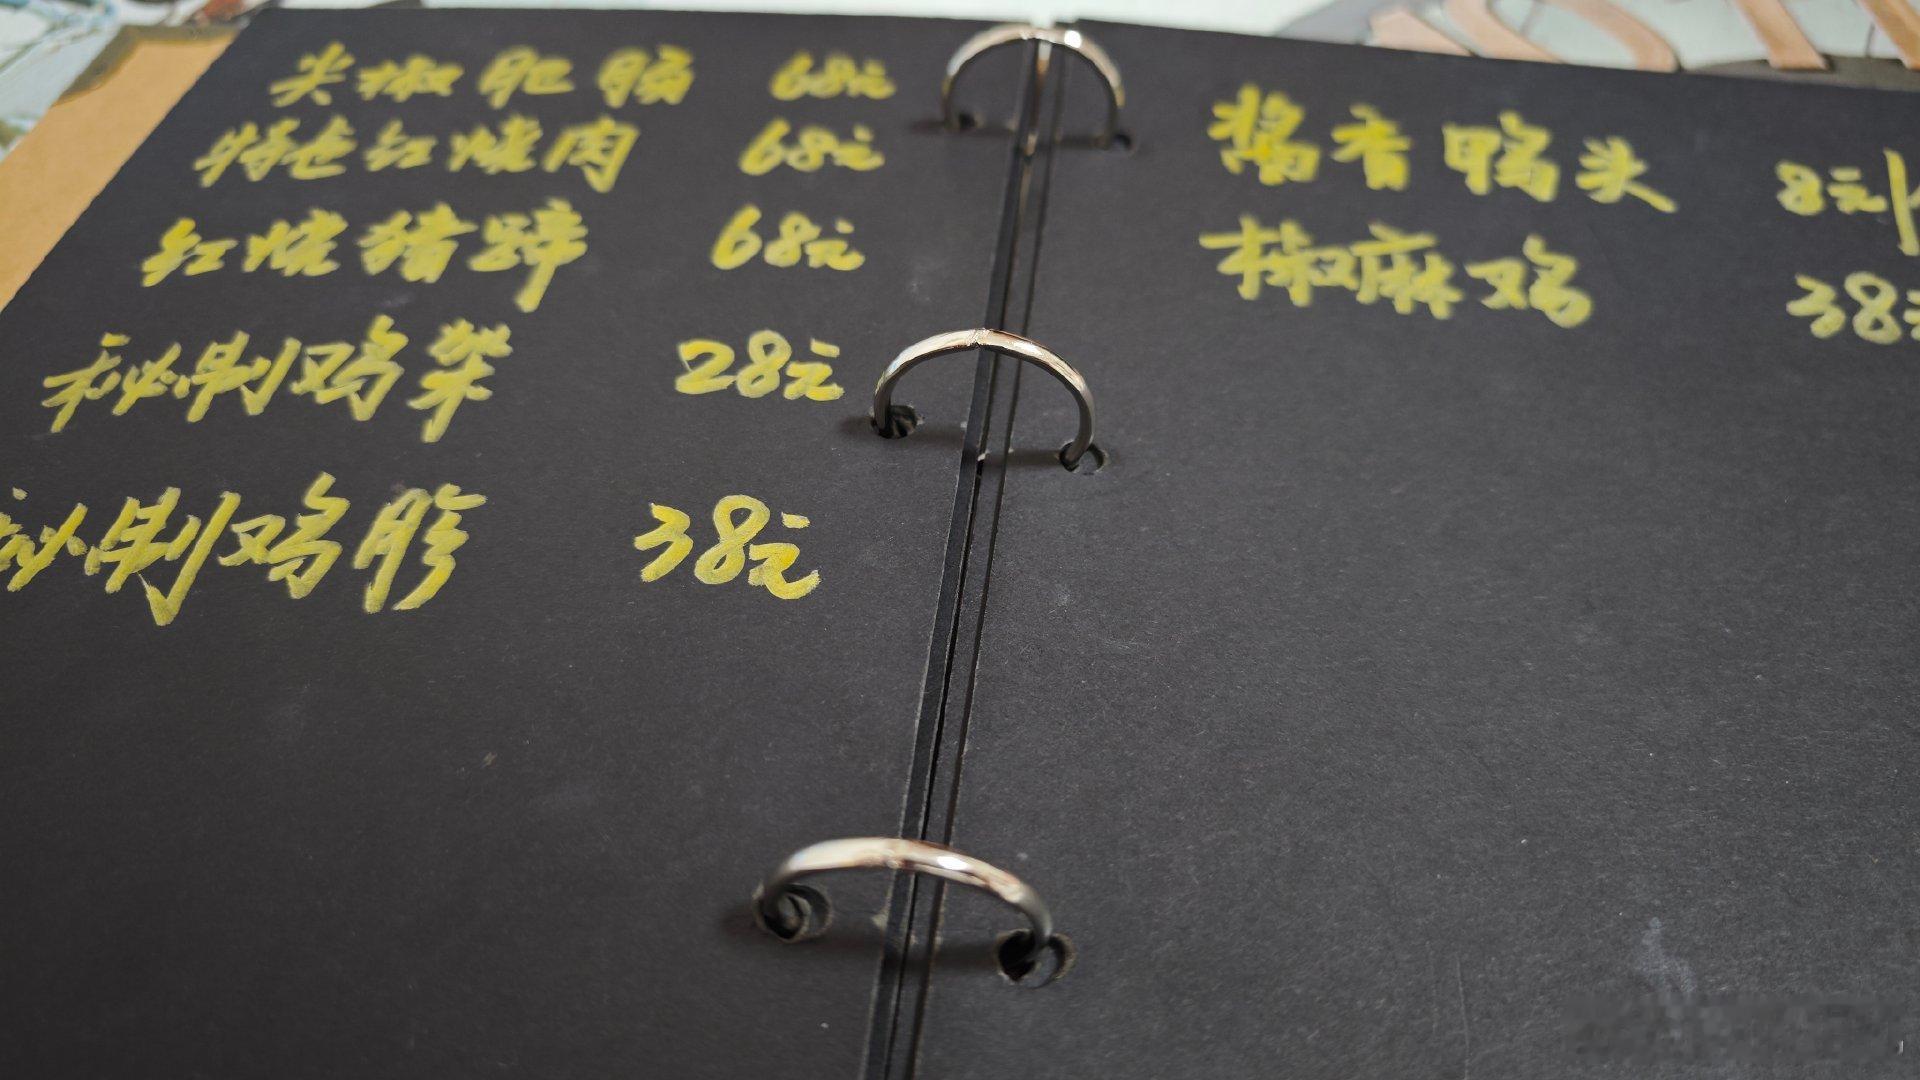 尖椒肥肠 68元
特色红烧肉 68元
红烧猪蹄 68元
秘制鸡架 28元
秘制鸡胗 38元
酱香鸭头 8元/
椒麻鸡 38元